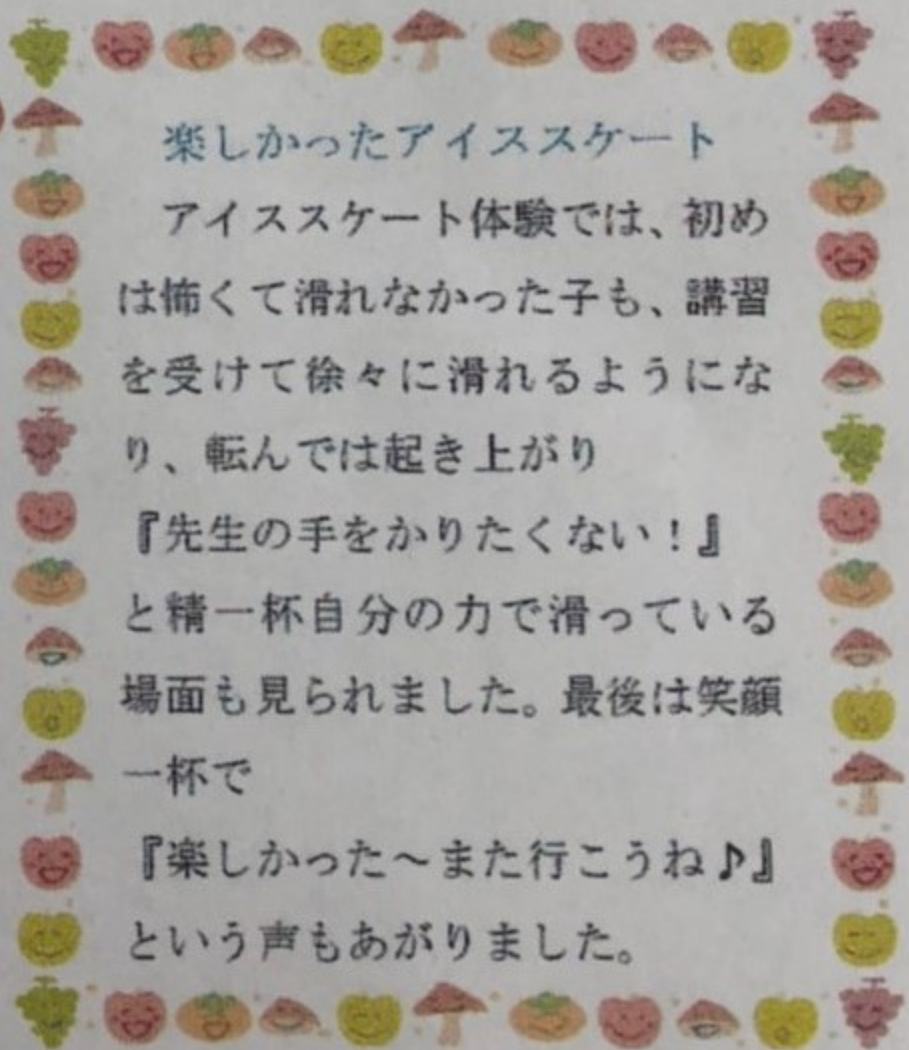 楽しかったアイススケート
アイススケート体験では、初め
は怖くて滑れなかった子も、講習
を受けて徐々に滑れるようにな
り、転んでは起き上がり
『先生の手をかりたくない！』
と精一杯自分の力で滑っている
場面も見られました。最後は笑顔
一杯で
『楽しかった～また行こうね♪』
という声もあがりました。